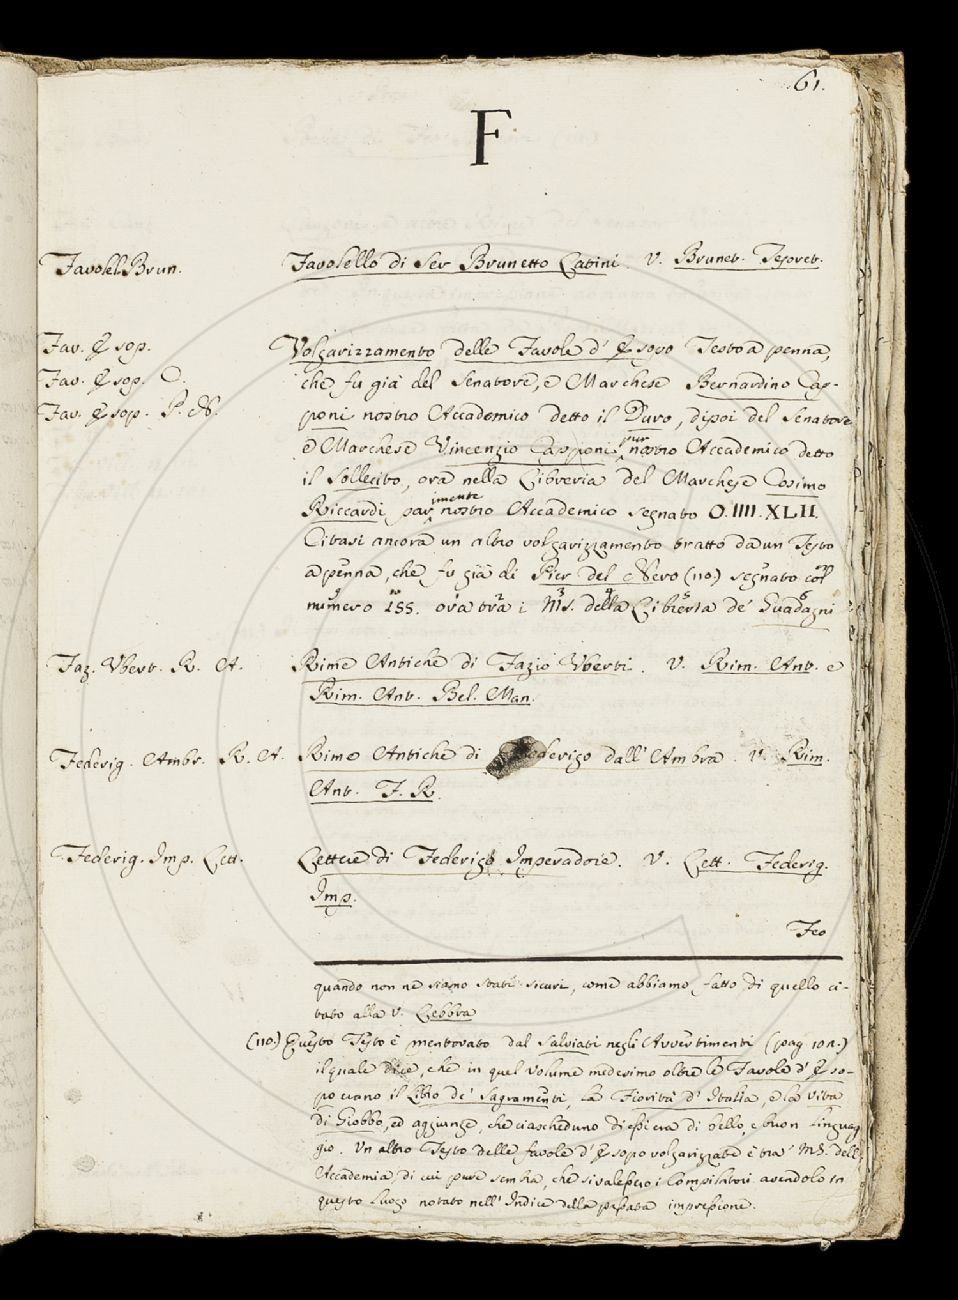 61.
F
Favolel. Brun. Favolello di Ser Brunetto Latini. V. Brunet. Tesoret.
Fav. Esop. Volgarizzamento delle Favole d' Esopo Testo a penna,
Fav. Esop. C. che fu già del Senatore, e Marchese Bernardino Cap-
Fav. Esop. P. N. poni nostro Accademico detto il Duro, dipoi del Senatore
e Marchese Vincenzio Capponi pur nostro Accademico detto
il Sollecito, ora nella Libreria del Marchese Cosimo
Riccardi parimente nostro Accademico segnato O. IIII. XLII.
Citasi ancora un altro volgarizzamento tratto da un Testo
a penna, che fu già di Pier del Nero (110) segnato col
numero 155. ora tra i MS. della Libreria de' Guadagni
Faz. Ubert. R. A. Rime Antiche di Fazio Uberti. V. Rim. Ant. e
Rim. Ant. Bel. Man.
Federig. Ambr. R. A. Rime Antiche di Federigo dall' Ambra. V. Rim.
Ant. F. R.
Federig. Imp. Lett. Lettere di Federigo Imperadore. V. Lett. Federig.
Imp.
Feo
quando non ne siamo stati sicuri, come abbiamo fatto di quello ci-
tato alla V. Lebbra
(110.) Questo Testo è mentovato dal Salviati negli Avvertimenti (pag. 101.)
il quale dice, che in quel volume medesimo oltre le Favole d' Eso-
po erano il Libro de' Sagramenti, la Fiorità d' Italia, e la vita
di Giobbo, ed aggiunge, che ciascheduno di essi era di bello, e buon linguag-
gio. Un altro Testo delle favole d' Esopo volgarizzate è tra' MS. dell'
Accademia, di cui pure sembra, che si valessero i Compilatori avendolo in
questo luogo notato nell' Indice della passata impressione.